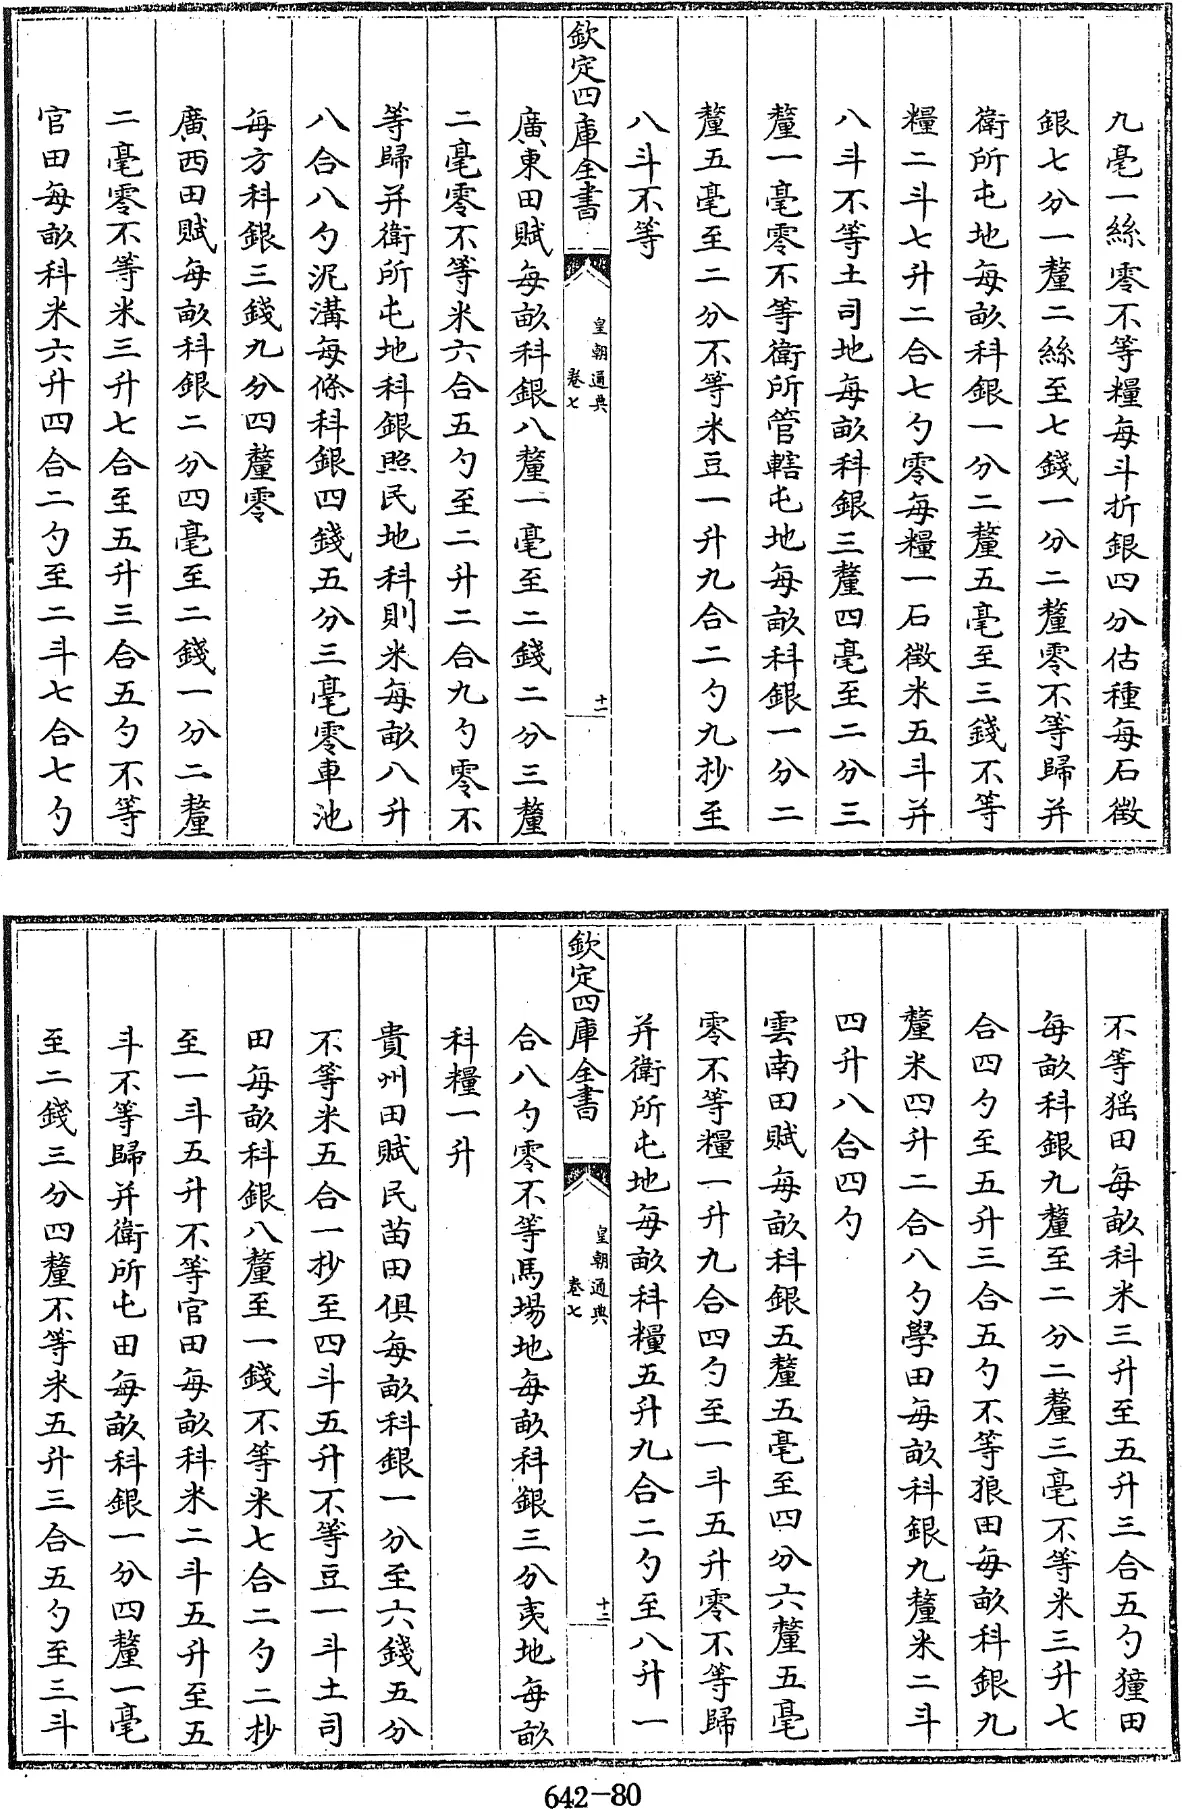 九毫一絲零不等糧每斗折銀四分估種每石徵
銀七分一釐二絲至七錢一分二釐零不等歸并
衛所屯地每畝科銀一分二釐五毫至三錢不等
糧二斗七升二合七勺零每糧一石徵米五斗并
八斗不等土司地每畝科銀三釐四毫至二分三
釐一毫零不等衛所管轄屯地每畝科銀一分二
釐五毫至二分不等米豆一升九合二勺九抄至
八斗不等
欽定四庫全書
皇朝通典
卷七
十一
廣東田賦每畝科銀八釐一毫至二錢二分三釐
二毫零不等米六合五勺至二升二合九勺零不
等歸并衛所屯地科銀照民地科則米每畝八升
八合八勺泥溝每條科銀四錢五分三毫零車池
每方科銀三錢九分四釐零
廣西田賦每畝科銀二分四毫至二錢一分二釐
二毫零不等米三升七合至五升三合五勺不等
官田每畝科米六升四合二勺至二斗七合七勺
不等猺田每畝科米三升至五升三合五勺獞田
每畝科銀九釐至二分二釐三毫不等米三升七
合四勺至五升三合五勺不等狼田每畝科銀九
釐米四升二合八勺學田每畝科銀九釐米二斗
四升八合四勺
雲南田賦每畝科銀五釐五毫至四分六釐五毫
零不等糧一升九合四勺至一斗五升零不等歸
并衛所屯地每畝科糧五升九合二勺至八升一
欽定四庫全書
皇朝通典
卷七
十二
合八勺零不等馬場地每畝科銀三分夷地每畝
科糧一升
貴州田賦民苗田俱每畝科銀一分至六錢五分
不等米五合一抄至四斗五升不等豆一斗土司
田每畝科銀八釐至一錢不等米七合二勺二抄
至一斗五升不等官田每畝科米二斗五升至五
斗不等歸并衛所屯田每畝科銀一分四釐一毫
至二錢三分四釐不等米五升三合五勺至三斗
642-80